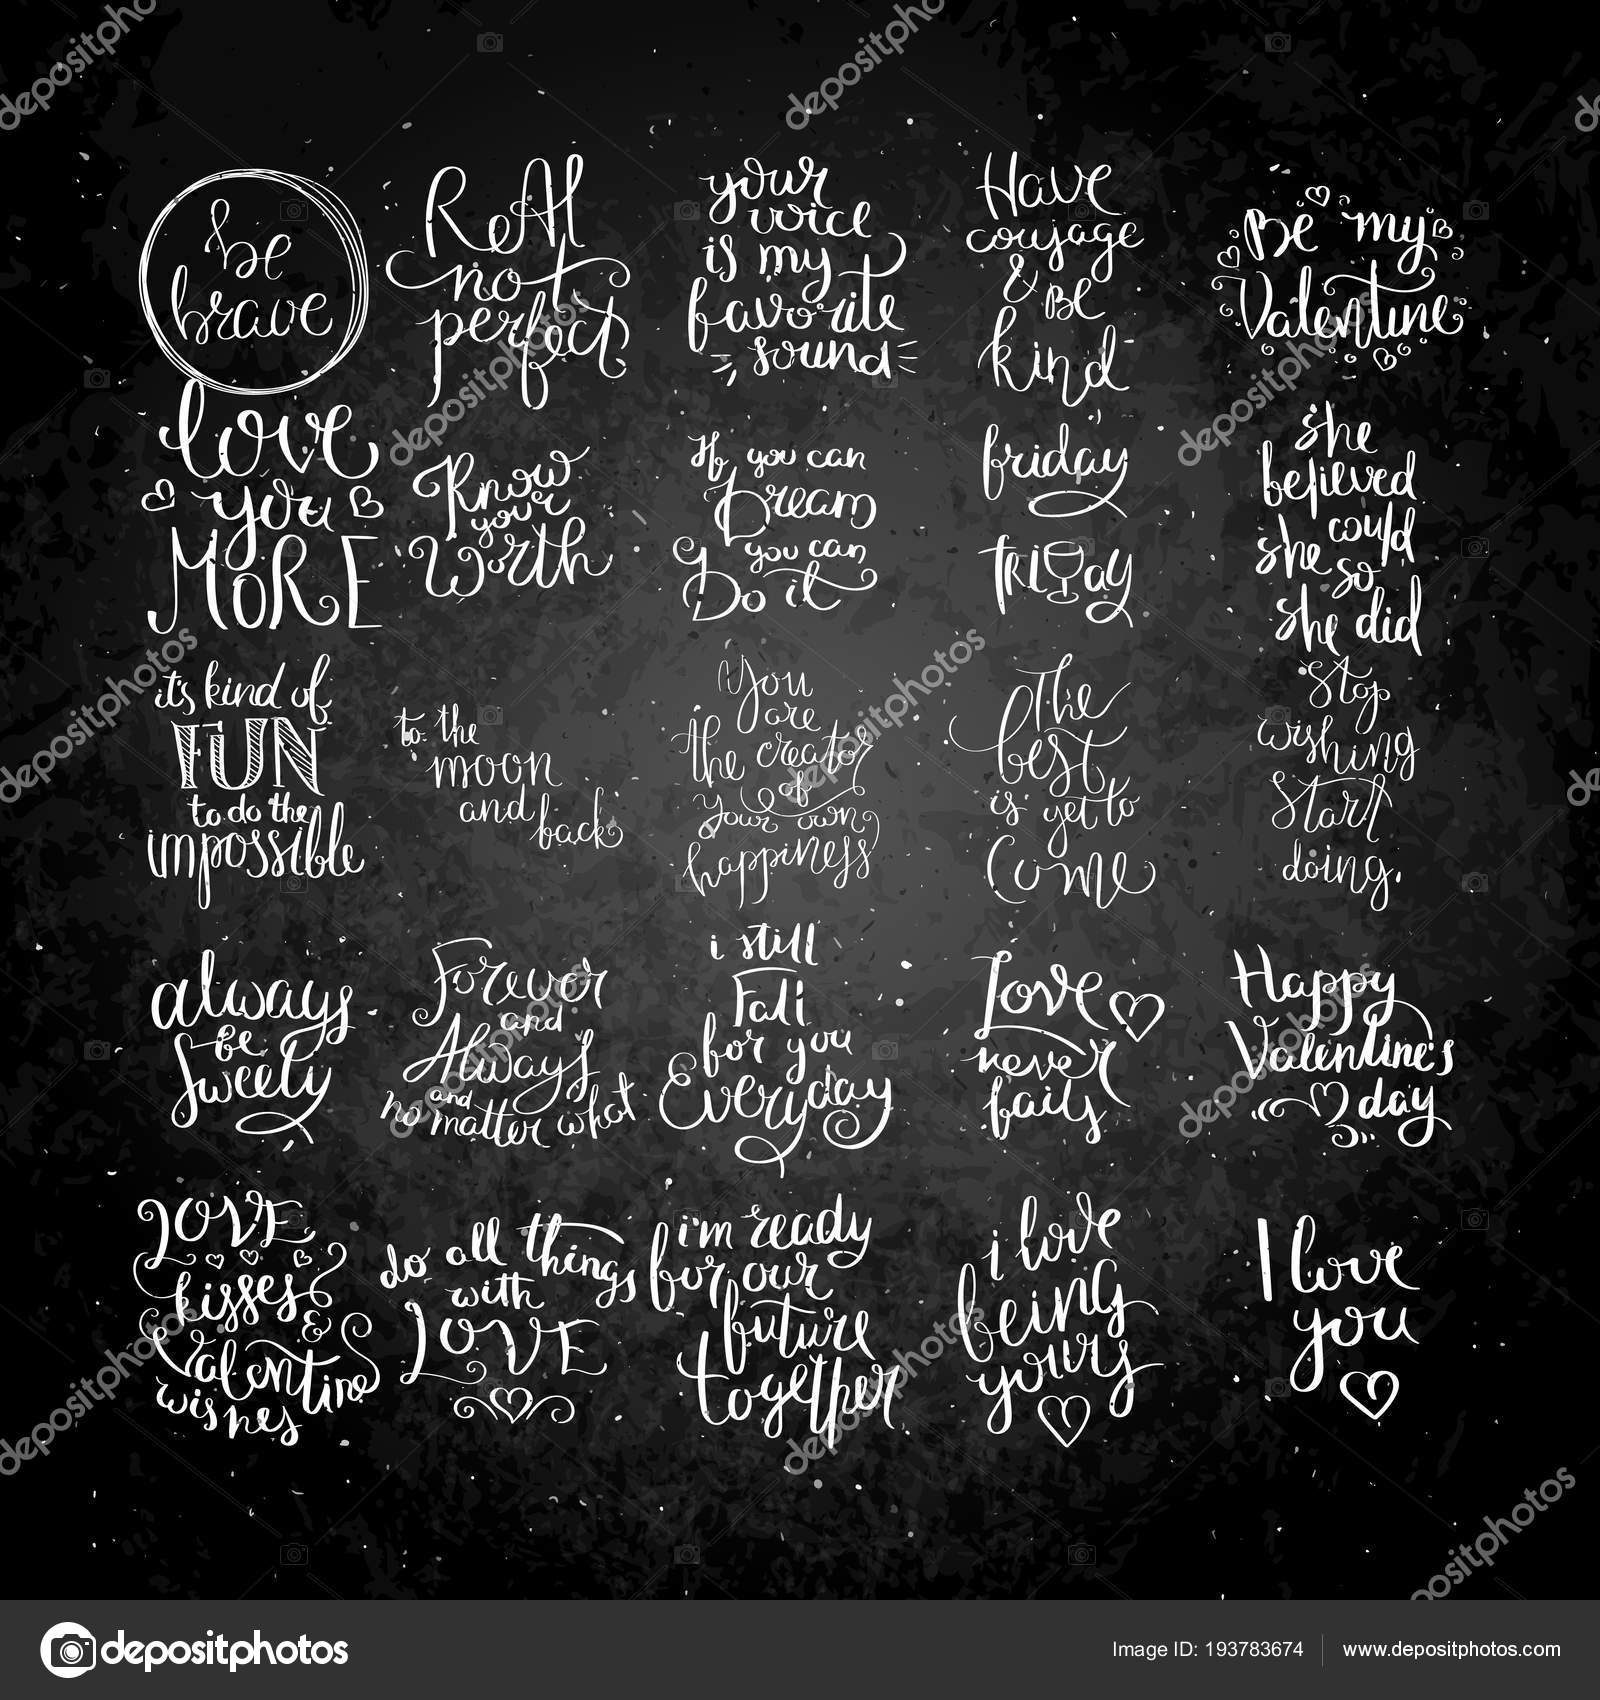 be
brave
Real
not
perfect
your
voice
is my
favorite
sound
Have
courage
& Be
kind
Be my
Valentine
love
you
MORE
Know
your
Worth
If you can
Dream
you can
Do it
friday
friday
She
believed
she could
so
she did
it's kind of
FUN
to do the
impossible
to the
moon
and back
You
are
the creator
of
your own
happiness
The
best
is yet to
Come
Stop
wishing
Start
doing.
always
be
sweety
Forever
and
Always
and
no matter what
i still
Fall
for you
Everyday
Love
never
fails
Happy
Valentine's
day
LOVE
kisses
&
Valentine
wishes
do all things
with
LOVE
i'm ready
for our
future
together
i love
being
yours
I love
you
depositphotos
Image ID: 193783674
www.depositphotos.com